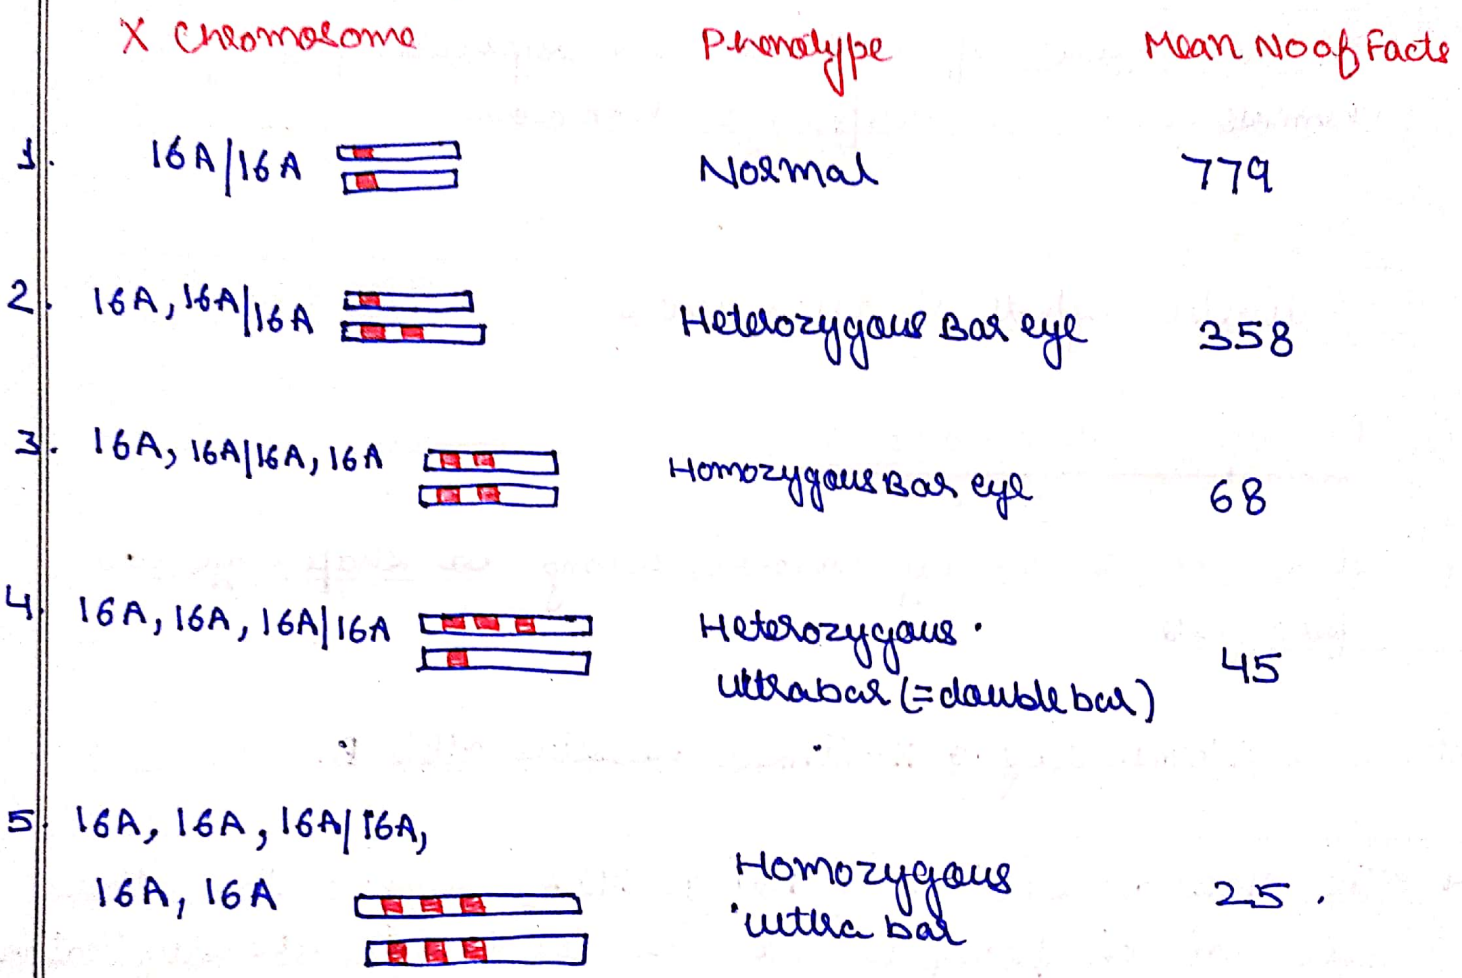 X Chromosome Phenotype Mean No of Facts
1. 16A/16A Normal 779
2. 16A, 16A/16A Heterozygous Bar eye 358
3. 16A, 16A/16A, 16A Homozygous Bar eye 68
4. 16A, 16A, 16A/16A Heterozygous
ultrabar (=double bar) 45
5. 16A, 16A, 16A/16A,
16A, 16A Homozygous 25.
ultra bar